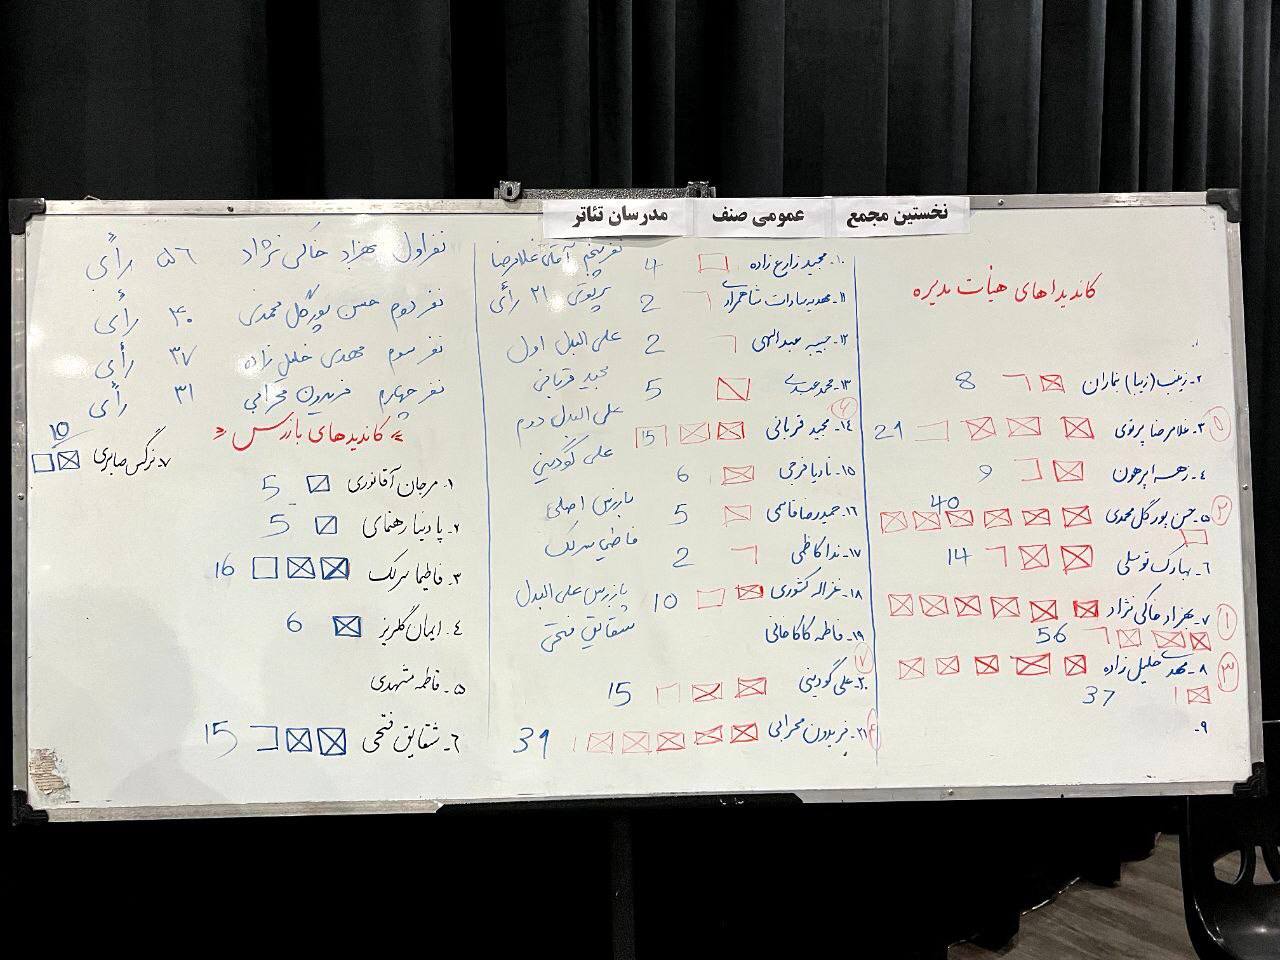 نخستین مجمع عمومی صنف مدرسان تئاتر
کاندیداهای هیأت مدیره
۱.
۲- زینب (زیبا) بناران 8
۳- غلامرضا پرتوی 21 ۵
۴- پرهون 9
۵- حسن پورگل محمدی 40 ۲
۶- بهارک توسلی 14
۷- بهزاد خاکی نژاد 56 ۱
۸- مهدی خلیل زاده 37 ۳
۹-
۱۰- مجید زارع زاده 4
۱۱- مهدیه سادات 2
۱۲- حبیبه عبدالهی 2
۱۳- محمد عبدی 5
۱۴- مجید قربانی 15 ۶
۱۵- نادیا فرجی 6
۱۶- حمیدرضا قاسمی 5
۱۷- ندا کاظمی 2
۱۸- غزاله کشوری 10
۱۹- فاطمه کاکاخانی
۲۰- علی گودینی 15 ۷
۲۱- فریدون محرابی 31 ۴
نفر اول بهزاد خاکی نژاد ۵۶ رأی
نفر دوم حسن پورگل محمدی ۴۰ رأی
نفر سوم مهدی خلیل زاده ۳۷ رأی
نفر چهارم فریدون محرابی ۳۱ رأی
نفر پنجم آقای غلامرضا
پرتوی ۲۱ رأی
علی البدل اول
مجید قربانی
علی البدل دوم
علی گودینی
بازرس اصلی
فاطیما سرلک
بازرس علی البدل
شقایق فتحی
« کاندیدهای بازرس »
۱. مرجان آقانوری 5
۲. پادینا رهنمای 5
۳. فاطیما سرلک 16
۴. ایمان گلریز 6
۵. فاطمه مشهدی
۶. شقایق فتحی 15
۷. نرگس صابری 10